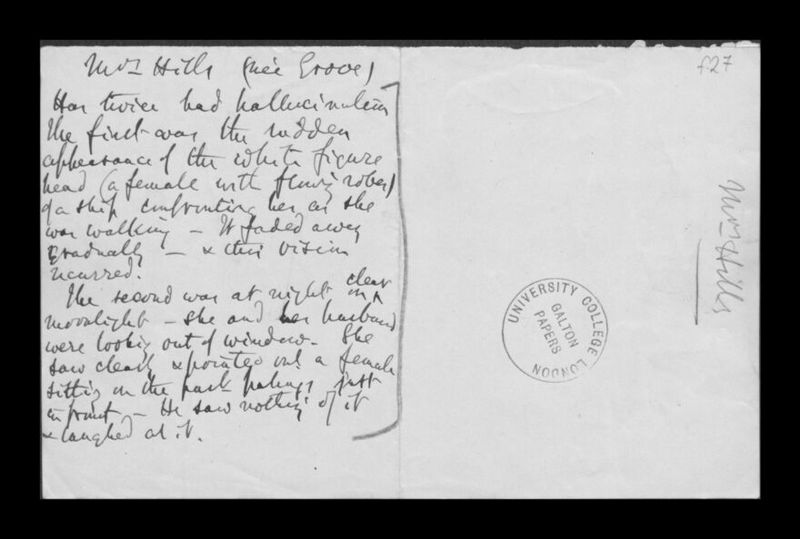 Mrs Hills (née Grove)
Has twice had hallucinations
The first was the sudden
appearance of the white figure
head (a female with flowing robes)
of a ship confronting her as she
was walking – It faded away
gradually – & this vision
recurred.
The second was at night in clear
moonlight – she and her husband
were looking out of window. She
saw clearly & pointed out a female
sitting on the park palings just
in front – He saw nothing of it
& laughed at it.
f27
Mrs Hills
UNIVERSITY COLLEGE LONDON
GALTON
PAPERS